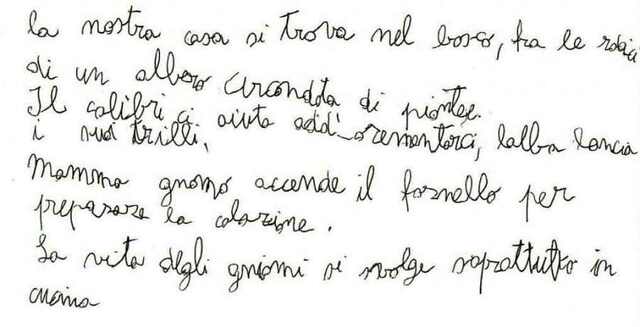 la nostra casa si trova nel bosco, fra le radici
di un albero circondata di piante.
Il colibrì ci aiuta add
i suoi trilli, l'alba lancia
Mamma gnomo accende il fornello per
preparare la colazione.
La vita degli gnomi si svolge soprattutto in
cucina